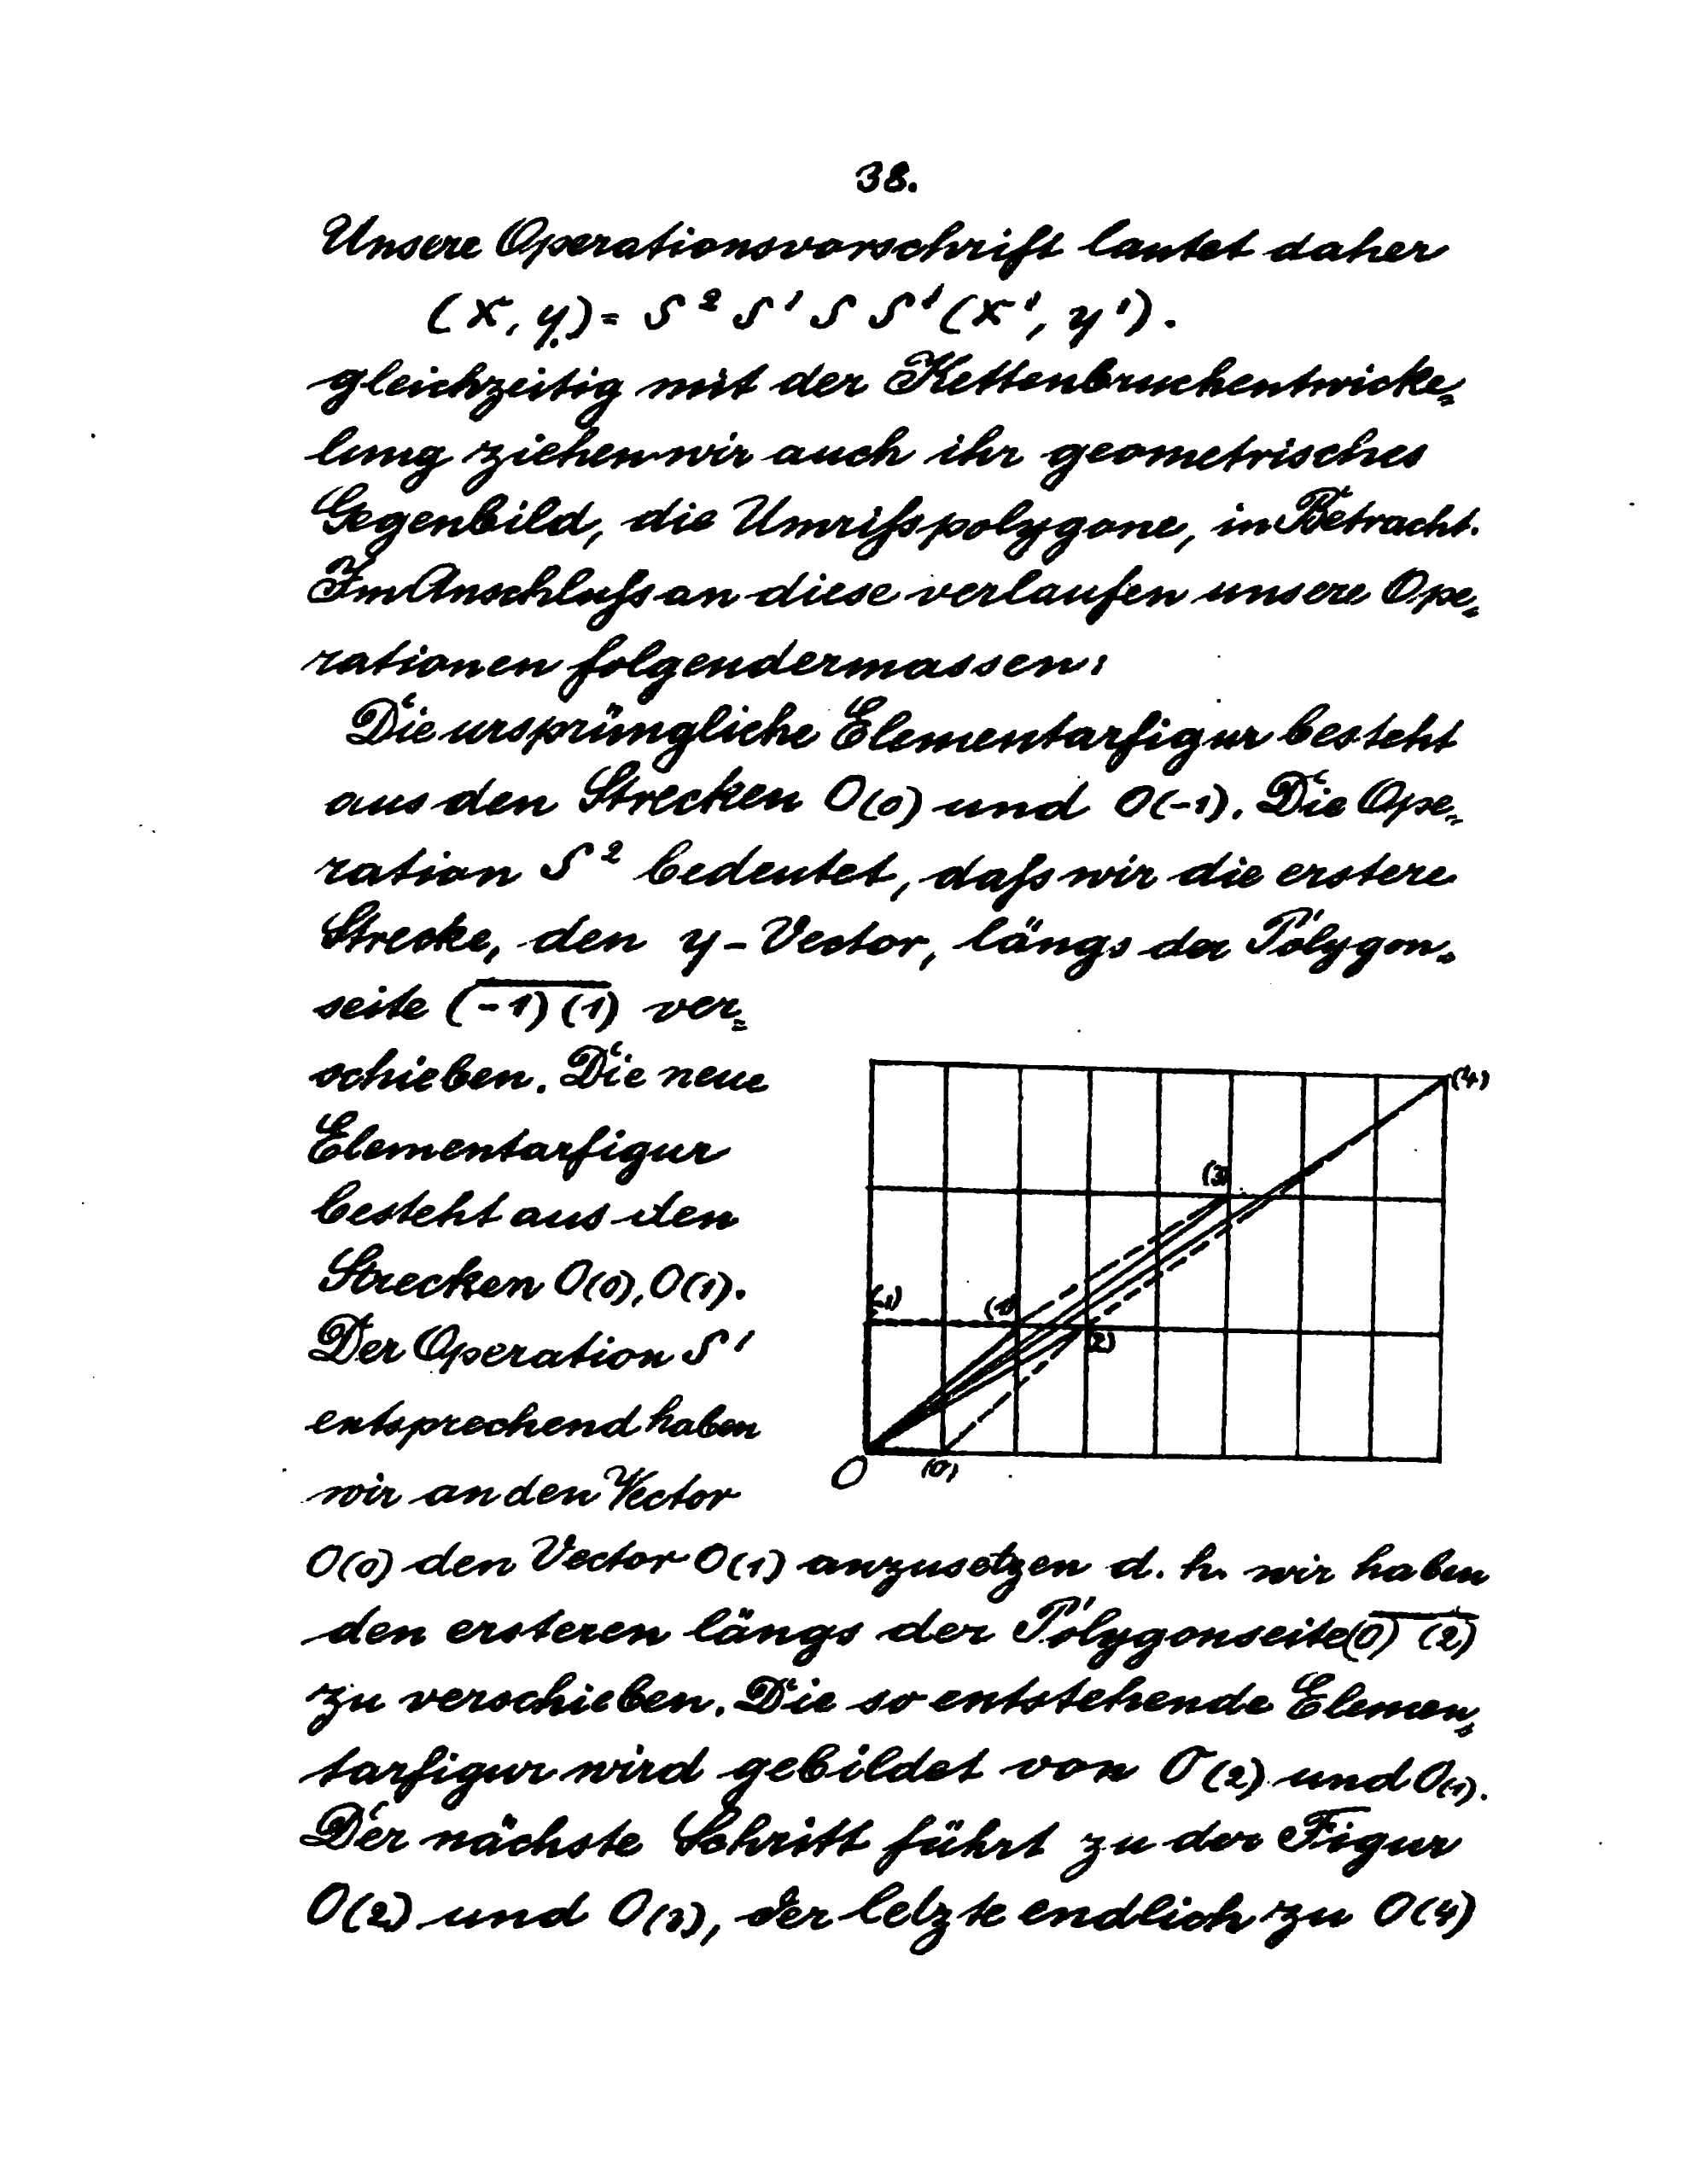 38.
Unsere Operationsvorschrift lautet daher
(x, y) = S² S' S S' (x', y').
gleichzeitig mit der Kettenbruchentwicke=
lung ziehen wir auch ihr geometrisches
Gegenbild, die Umrißpolygone, in Betracht.
Im Anschluß an diese verlaufen unsere Ope=
rationen folgendermassen:
Die ursprüngliche Elementarfigur besteht
aus den Strecken O(0) und O(-1). Die Ope=
ration S² bedeutet, daß wir die erstere
Strecke, den y-Vector, längs der Polygon=
seite (-1)(1) ver=
schieben. Die neue
Elementarfigur
besteht aus den
Strecken O(0), O(1).
Der Operation S'
entsprechend haben
wir an den Vector
O(0) den Vector O(1) anzusetzen d. h. wir haben
den ersteren längs der Polygonseite (0) (2)
zu verschieben. Die so entstehende Elemen=
tarfigur wird gebildet von O(2) und O(1).
Der nächste Schritt führt zu der Figur
O(2) und O(3), der letzte endlich zu O(4)
(4)
(3)
(-1)
(1)
(2)
O
(0)